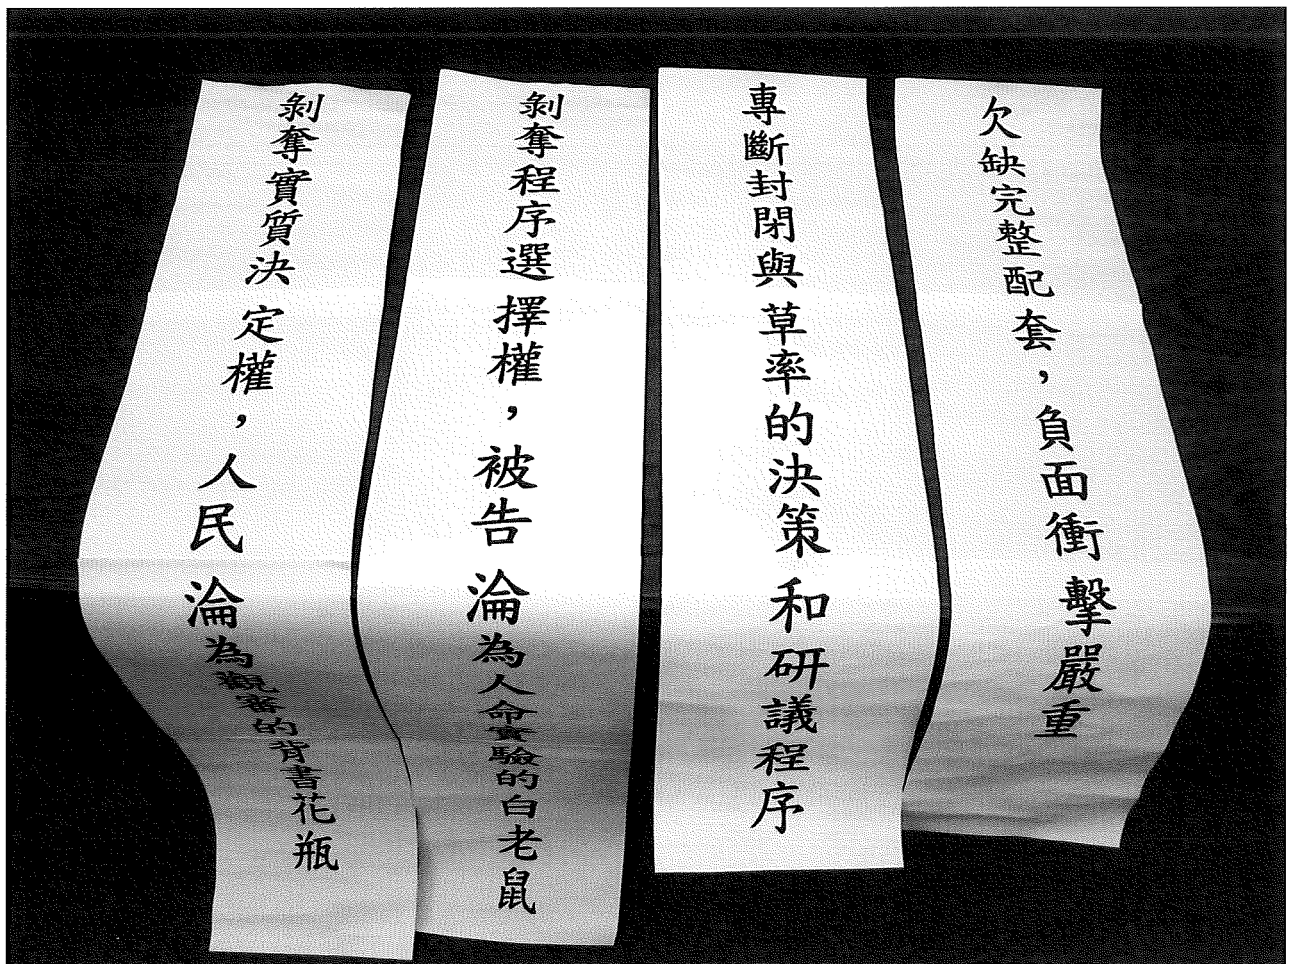 欠缺完整配套，負面衝擊嚴重
專斷封閉與草率的決策和研議程序
剝奪程序選擇權，被告淪為人命實驗的白老鼠
剝奪實質決定權，人民淪為觀審的背書花瓶